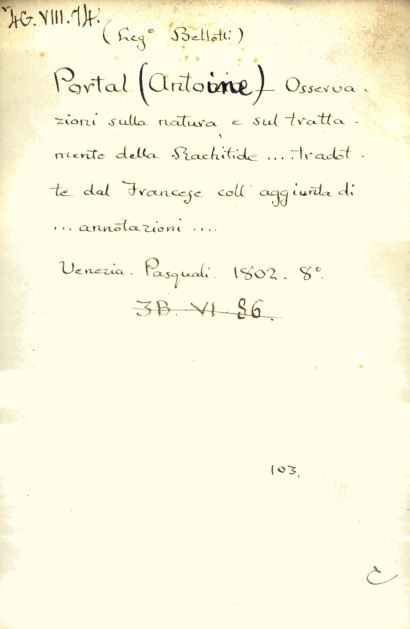 4G.VIII.14.
(Leg° Bellotti)
Portal (Antoine) Osserva-
zioni sulla natura e sul tratta-
mento della Rachitide .... tradot-
te dal Francese coll'aggiunta di
... annotazioni ....
Venezia. Pasquali. 1802. 8°.
3B. VI. 86.
103.
C